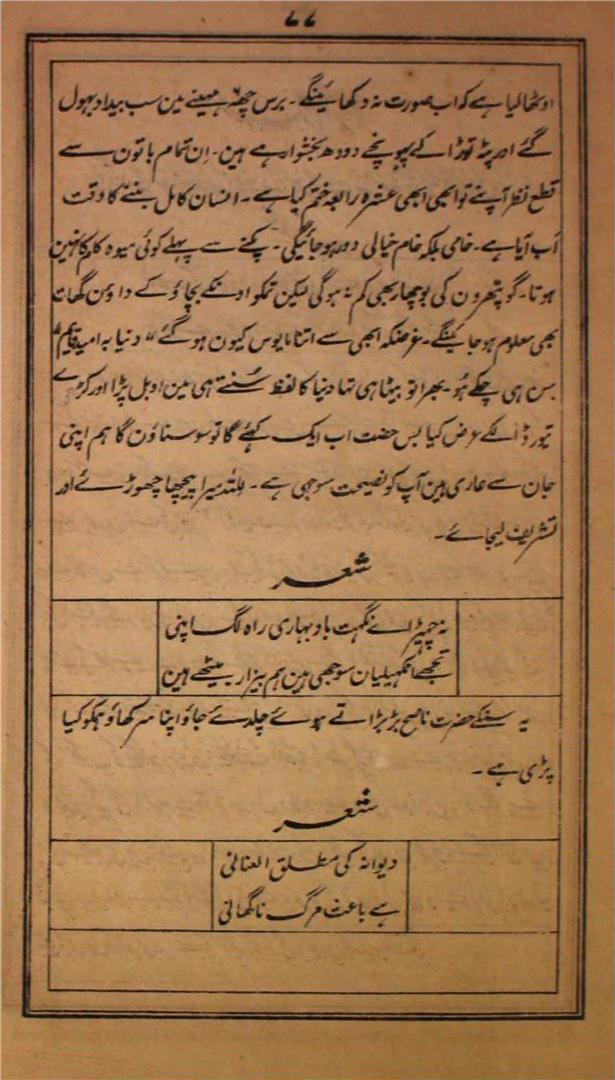 ۷۷
اوٹھا لیا ہے کہ اب صورت نہ دکھائینگے۔ برس چھہ مہینے مین سب بیداد بہول
گئے اور پٹہ توڑا کے پہونچے دودھ بخشوا رہے ہین۔ ان تمام باتون سے
قطع نظر آپنے تو ابھی ابھی عشرہ رابعہ ختم کیا ہے۔ انسان کامل بننے کا وقت
اب آیا ہے۔ خامی بلکہ خام خیالی دور ہو جائیگی۔ پکنے سے پہلے کوئی میوہ کام کا نہین
ہوتا۔ گو پتھرون کی بوچھار بھی کم نہ ہوگی لیکن تمکو اونکے بچاؤ کے داؤن گھات
بھی معلوم ہو جائینگے۔ غرضکہ ابھی سے اتنا مایوس کیون ہو گئے "دنیا بہ امید قایم"
سن ہی چکے ہو۔ بھرا تو بیٹھا ہی تہا دنیا کا لفظ سنتے ہی مین اوبل پڑا اور کڑے
تیور ڈالکے عرض کیا بس حضت اب ایک کہئے گا تو سو سناؤن گا ہم اپنی
جان سے عاری ہین آپ کو نصیحت سوجہی ہے۔ للہ میرا پیچھا چھوڑئے اور
تشریف لیجائے۔
شعر
نہ چھیڑ اے نگہت باد بہاری راہ لگ اپنی
تجھے اٹکھیلیان سوجھی ہین ہم بیزار بیٹھے ہین
یہ سنکے حضرت ناصح بڑبڑاتے ہوئے چلدئے جاؤ اپنا سر کھاؤ ہمکو کیا
پڑی ہے۔
شعر
دیوانہ کی مطلق العنانی
ہے باعث مرگ ناگہانی